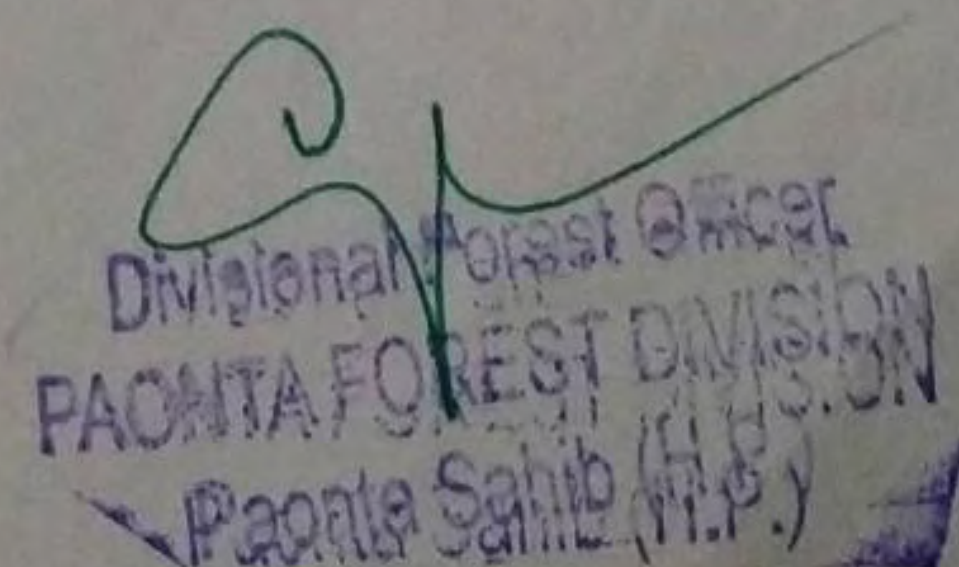 Divisional Forest Officer
PAONTA FOREST DIVISION
Paonta Sahib (H.P.)